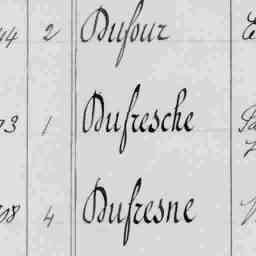 44 2 Dufour
73 1 Dufresche
708 4 Dufresne